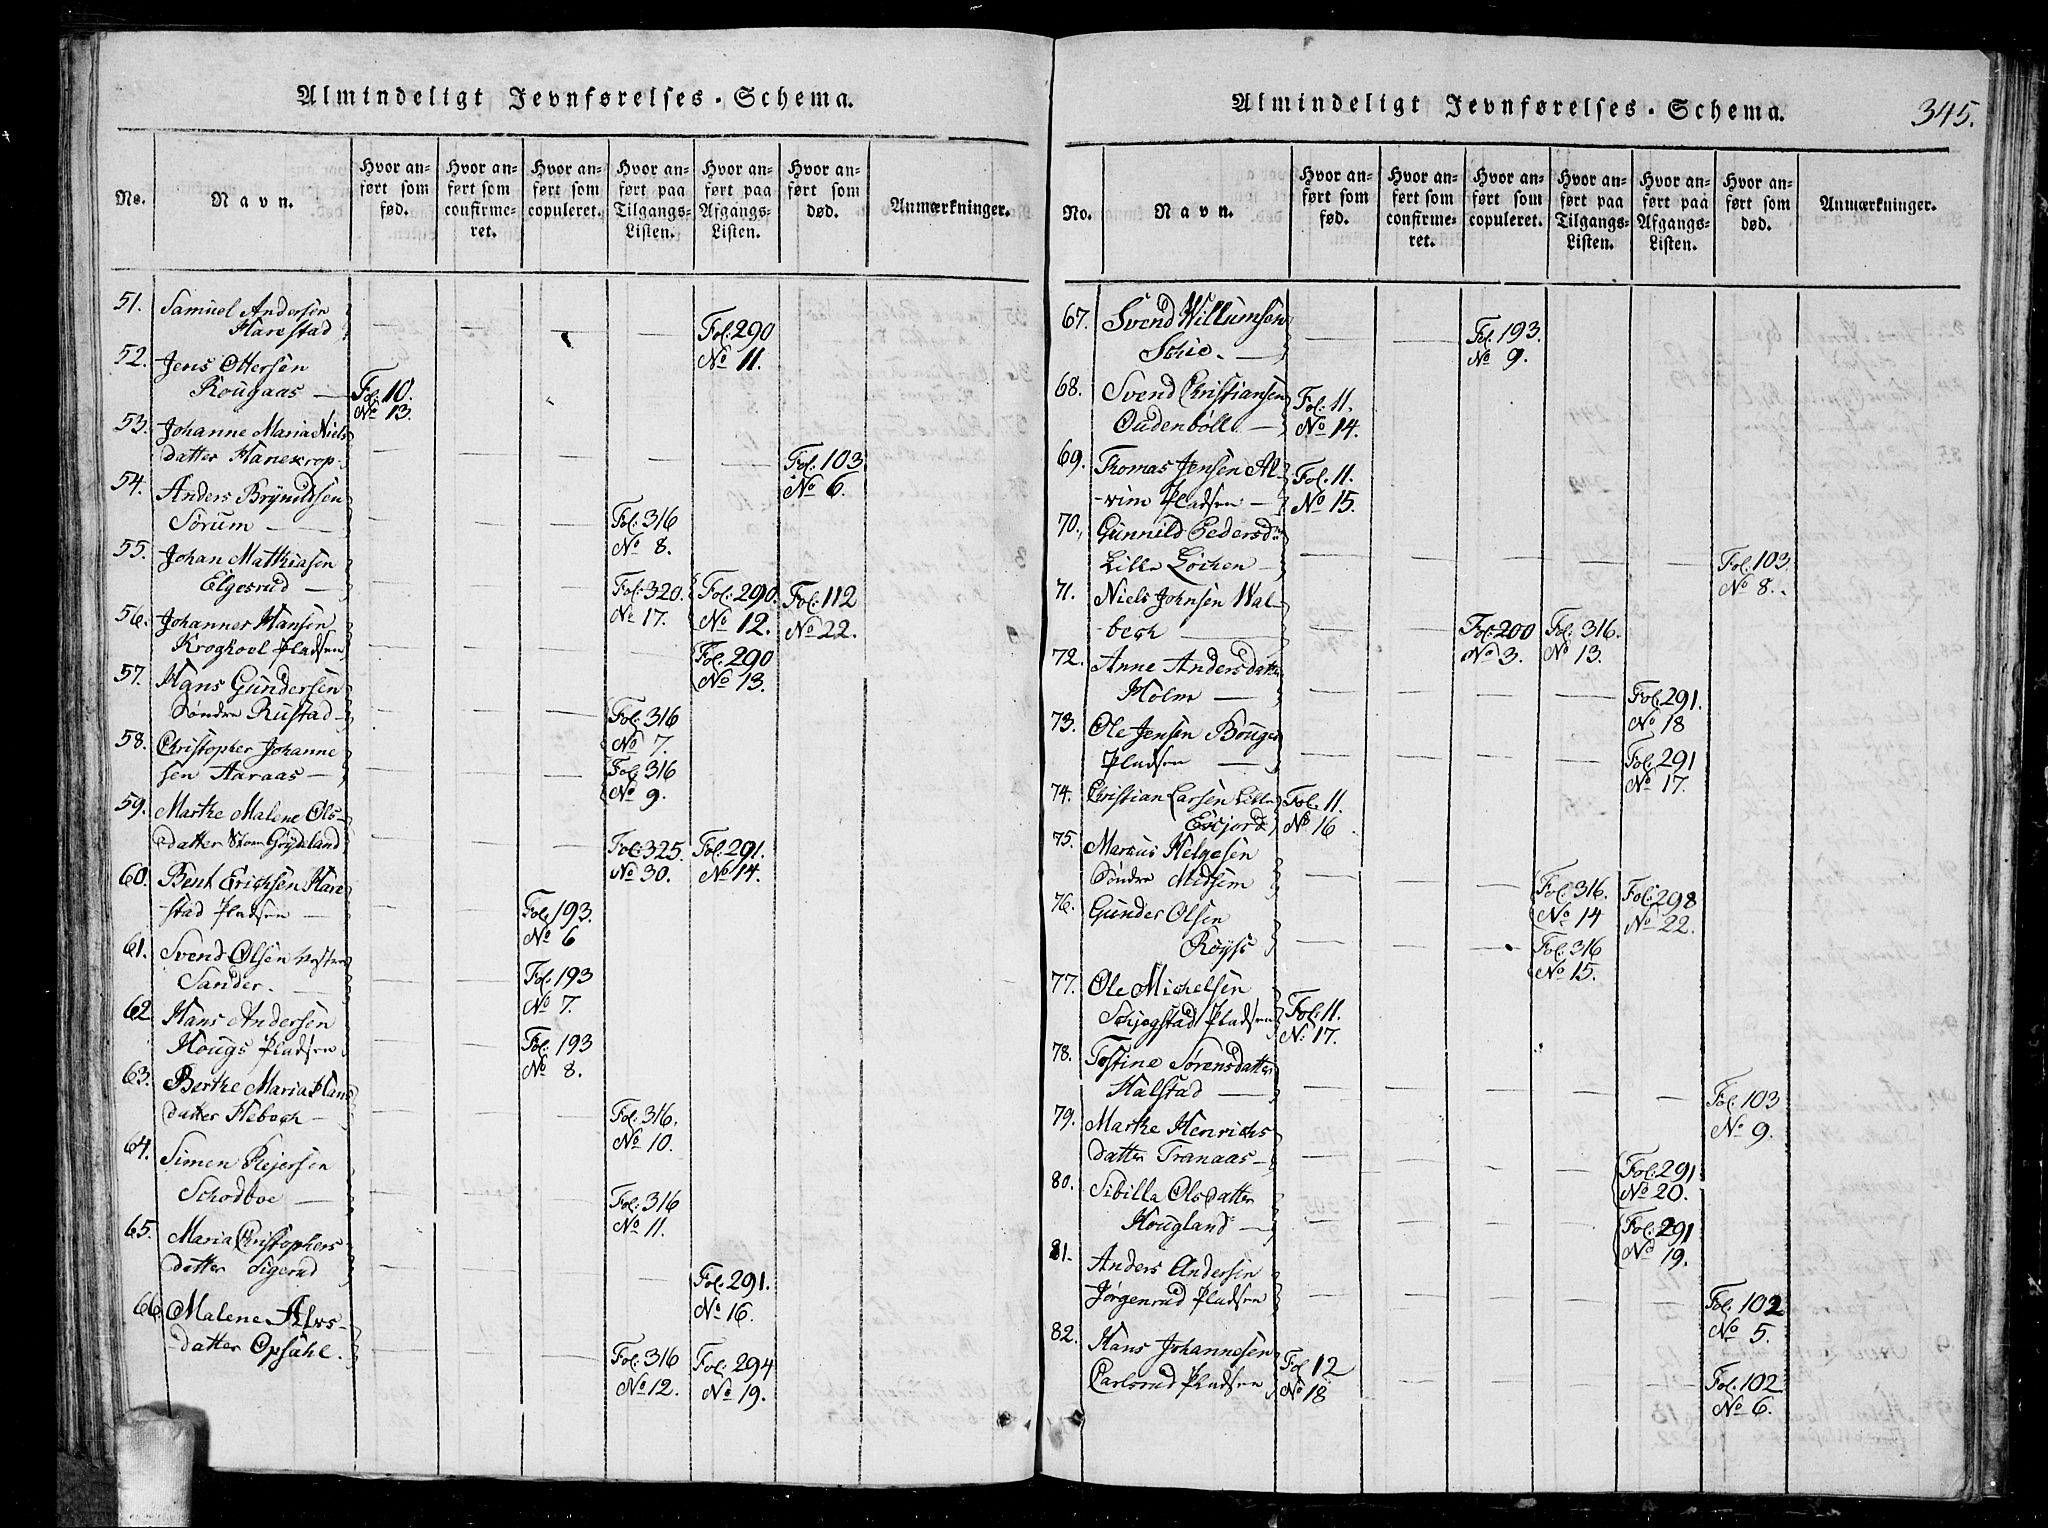 Almindeligt Jevnførelses-Schema.
No.
Navn.
Hvor an-
ført som
fød.
Hvor an-
ført som
confirme-
ret.
Hvor an-
ført som
copuleret.
Hvor an-
ført paa
Tilgangs-
Listen.
Hvor an-
ført paa
Afgangs-
Listen.
Hvor an-
ført som
død.
Anmærkninger.
51. Samuel Andersen
Harestad — — — — Fol: 290
No 11.
52. Jens Ottersen
Kougaas — Fol: 10.
No 13.
53. Johanne Maria Niels
datter Hanekrop — — — — — Fol: 103
No 6.
54. Anders Brynildsen
Sörum — — — — Fol: 316
No 8.
55. Johan Mathiasen
Elgesrud — — — — Fol: 320. Fol: 290. Fol: 112
No 17. No 12. No 22.
56. Johannes Hansen
Kroghoel Pladsen — — — — Fol: 290
No 13.
57. Hans Gundersen
Söndre Rustad — — — Fol: 316
No 7.
58. Christopher Johanne
sen Aaraas — — — — Fol: 316
No 9.
59. Marthe Malene Ols-
datter Store Gryteland — — — Fol: 325. Fol: 291.
No 30. No 14.
60. Bent Erichsen Hare
stad Pladsen — — — Fol: 193.
No 6
61. Svend Olsen Vestre
Sander. — — — Fol: 193
No 7.
62. Hans Andersen
Hougs Pladsen — — Fol: 193
No 8.
63. Berthe Maria Hans
datter Hebech — — — — Fol: 316.
No 10.
64. Simen Rejersen
Schodboe — — — — Fol: 316
No 11.
65. Maria Christophers
datter Sigerud — — — — Fol: 291.
No 16.
66. Malene Alvs-
datter Opsahl. — — — Fol: 316 Fol: 294
No 12. No 19.
Almindeligt Jevnførelses-Schema.
345.
No.
Navn.
Hvor an-
ført som
fød.
Hvor an-
ført som
confirme-
ret.
Hvor an-
ført som
copuleret.
Hvor an-
ført paa
Tilgangs-
Listen.
Hvor an-
ført paa
Afgangs-
Listen.
Hvor an-
ført som
død.
Anmærkninger.
67. Svend Willumsen
Schie. — — — Fol: 193.
No 9.
68. Svend Christiansen Fol: 11.
Oudenböll — No 14.
69. Thomas Jensen Al- Fol: 11.
vim Pladsen — No 15.
70. Gunnild Pedersdr
Lille Löchen — — — — — — Fol: 103
No 8.
71. Niels Johnsen Wal-
bech — — — Fol: 200 Fol: 316.
No 3. No 13.
72. Anne Andersdatter
Holm — — — — — Fol: 291.
No 18
73. Ole Jensen Bouger
Pladsen — — — — — Fol: 291
No 17.
74. Christian Larsen Lille Fol: 11.
Eskjord No 16
75. Marcus Helgesen
Söndre Midsem — — — Fol: 316. Fol: 298
No 14 No 22.
76. Gunder Olsen
Röyse — — Fol: 316
No 15.
77. Ole Michelsen
Schjegstad Pladsen Fol: 11.
No: 17.
78. Tostine Sörensdatter
Halstad — — — — — — Fol: 103
No 9.
79. Marthe Henrichs
datter Tranaas — — — — — Fol: 291
No 20.
80. Sibilla Olsdatter
Hougland — — — — — Fol: 291
No 19.
81. Anders Andersen
Jörgenrud Pladsen — — — — — Fol: 102
No 5.
82. Hans Johannesen
Carlsrud Pladsen Fol 12 — — — — Fol: 102
No 18 No 6.